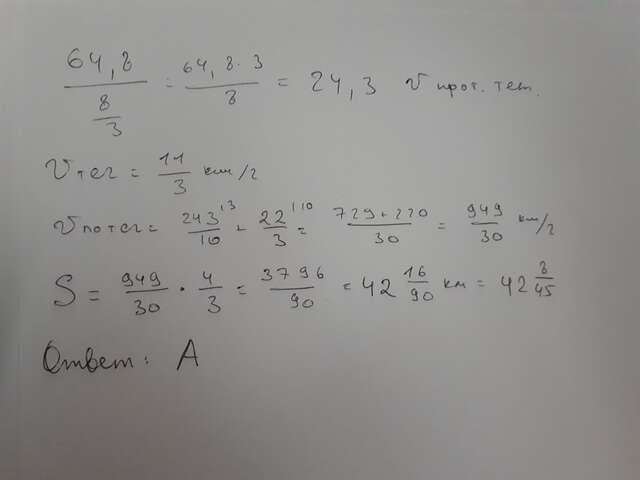 64,8 / (8/3) = 64,8·3 / 8 = 24,3 V прот. теч.
V теч = 11/3 км/г
V по теч = 243/10 + 22/3 = 729+220 / 30 = 949/30 км/г
S = 949/30 · 4/3 = 3796/90 = 42 16/90 км = 42 8/45
Ответ: А